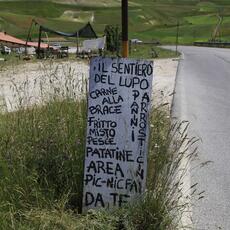 IL SENTIERO
DEL LUPO
CARNE
ALLA
BRACE
FRITTO
MISTO
PESCE
PATATINE
AREA
PIC-NIC
FAI
DA TE
PANNI
ARROSTICINI